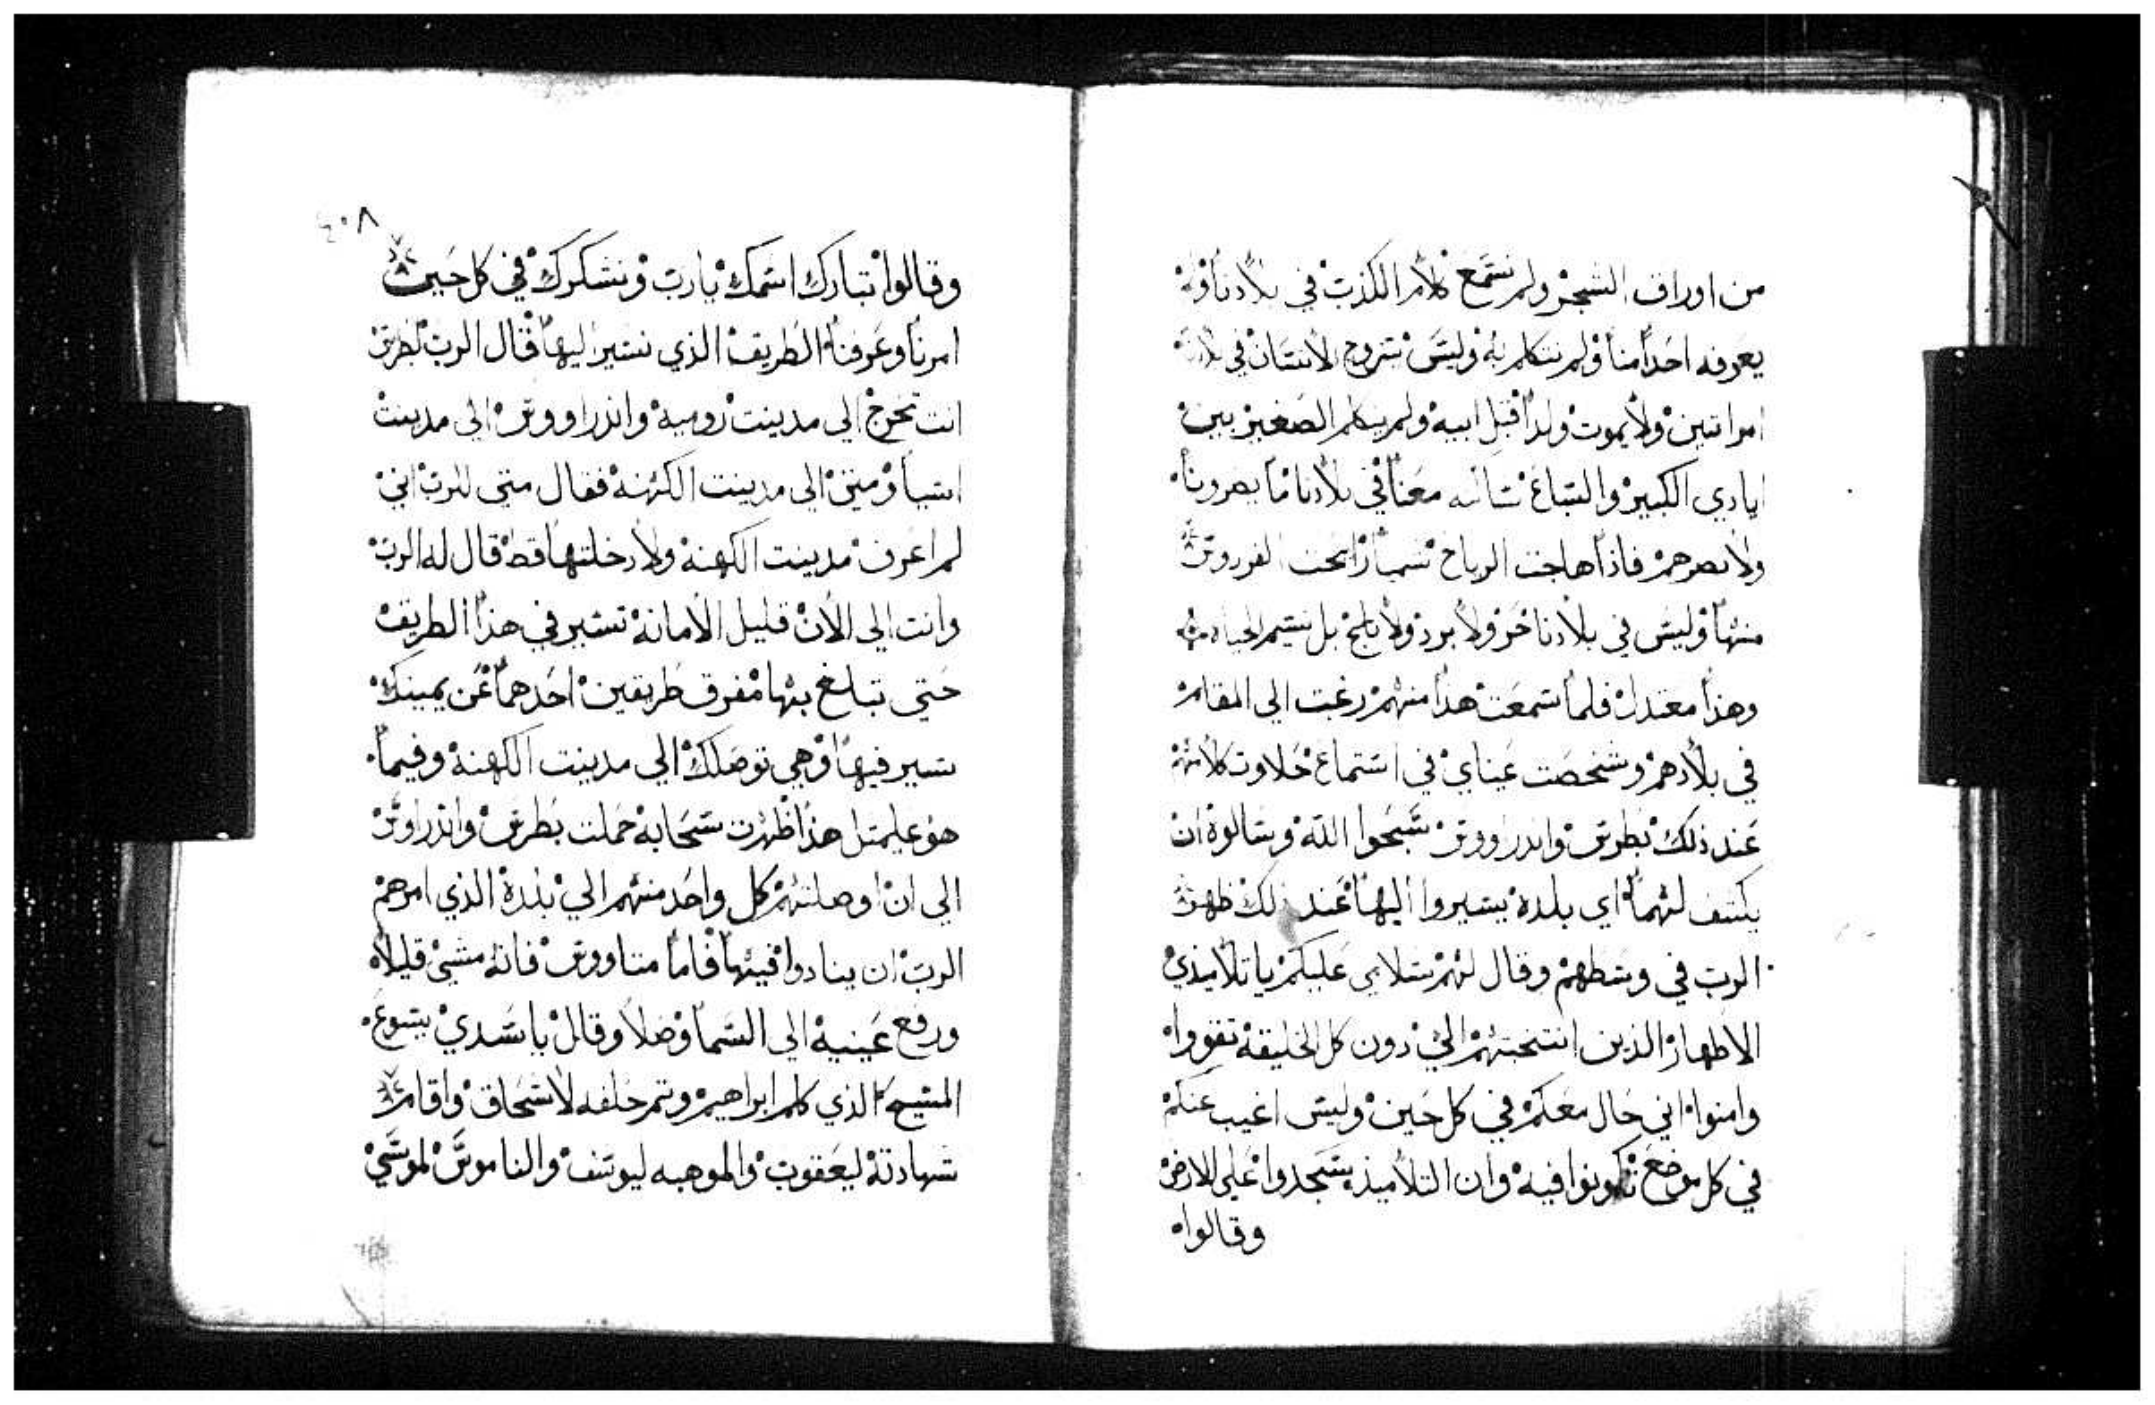 من اوراق الشجر ولم نسمع كلام الكذب في بلادنا ولا
يعرفه احداً منا ولم نتكلم به وليس يتزوج الانسان في بلادنا
امراتين ولا يموت ولداً قبل ابيه ولم يتكلم الصغير بين
ايادي الكبير والسباع تسائسه معنا في بلادنا ما يضرونا
ولا نضرهم فاذا هاجت الرياح نشم رايحت الفردوس
منها وليس في بلادنا حر ولا برد ولا ثلج بل نسيم الحياة
وهذا معتدل فلما سمعت هذا منهم رغبت الي المقام
في بلادهم وشخصت عيناي في استماع حلاوت كلامهم
عند ذلك بطرس واندراووس سبحوا الله وسالوه ان
يكشف لهما اي بلده يسيروا اليها عند ذلك ظهر
الرب في وسطهم وقال لهم سلامي عليكم يا تلاميذي
الاطهار الذين انتخبتهم الي دون كل الخليقة تقووا
وامنوا اني حال معكم في كل حين وليس اغيب عنكم
في كل موضع تكونوا فيه وان التلاميذ يسجدوا علي الارض
وقالوا
٤٠٨
وقالوا تبارك اسمك يارب ونشكرك في كل حين
امرنا وعرفنا الطريق الذي نسير اليها قال الرب لبطرس
انت تخرج الي مدينت رومية واندراووس الي مدينت
اسيا ومتي الي مدينت الكهنة فقال متي للرب اني
لم اعرف مدينت الكهنة ولا دخلتها قط قال له الرب
وانت الي الان قليل الامانة تسير في هذا الطريق
حتي تبلغ بها مفرق طريقين احدهما عن يمينك
تسير فيها وهي توصلك الي مدينت الكهنة وفيما
هو علي مثل هذا ظهرت سحابة حملت بطرس واندراوس
الي ان اوصلتهم كل واحد منهم الي بلدة الذي امرهم
الرب ان ينادوا فيها فاما متاووس فانه مشي قليلا
ورفع عينية الي السما وصلا وقال يا سيدي يسوع
المسيح الذي كلم ابراهيم وتم حلفه لاسحاق واقام
شهادته ليعقوب والموهبه ليوسف والناموس لموسي